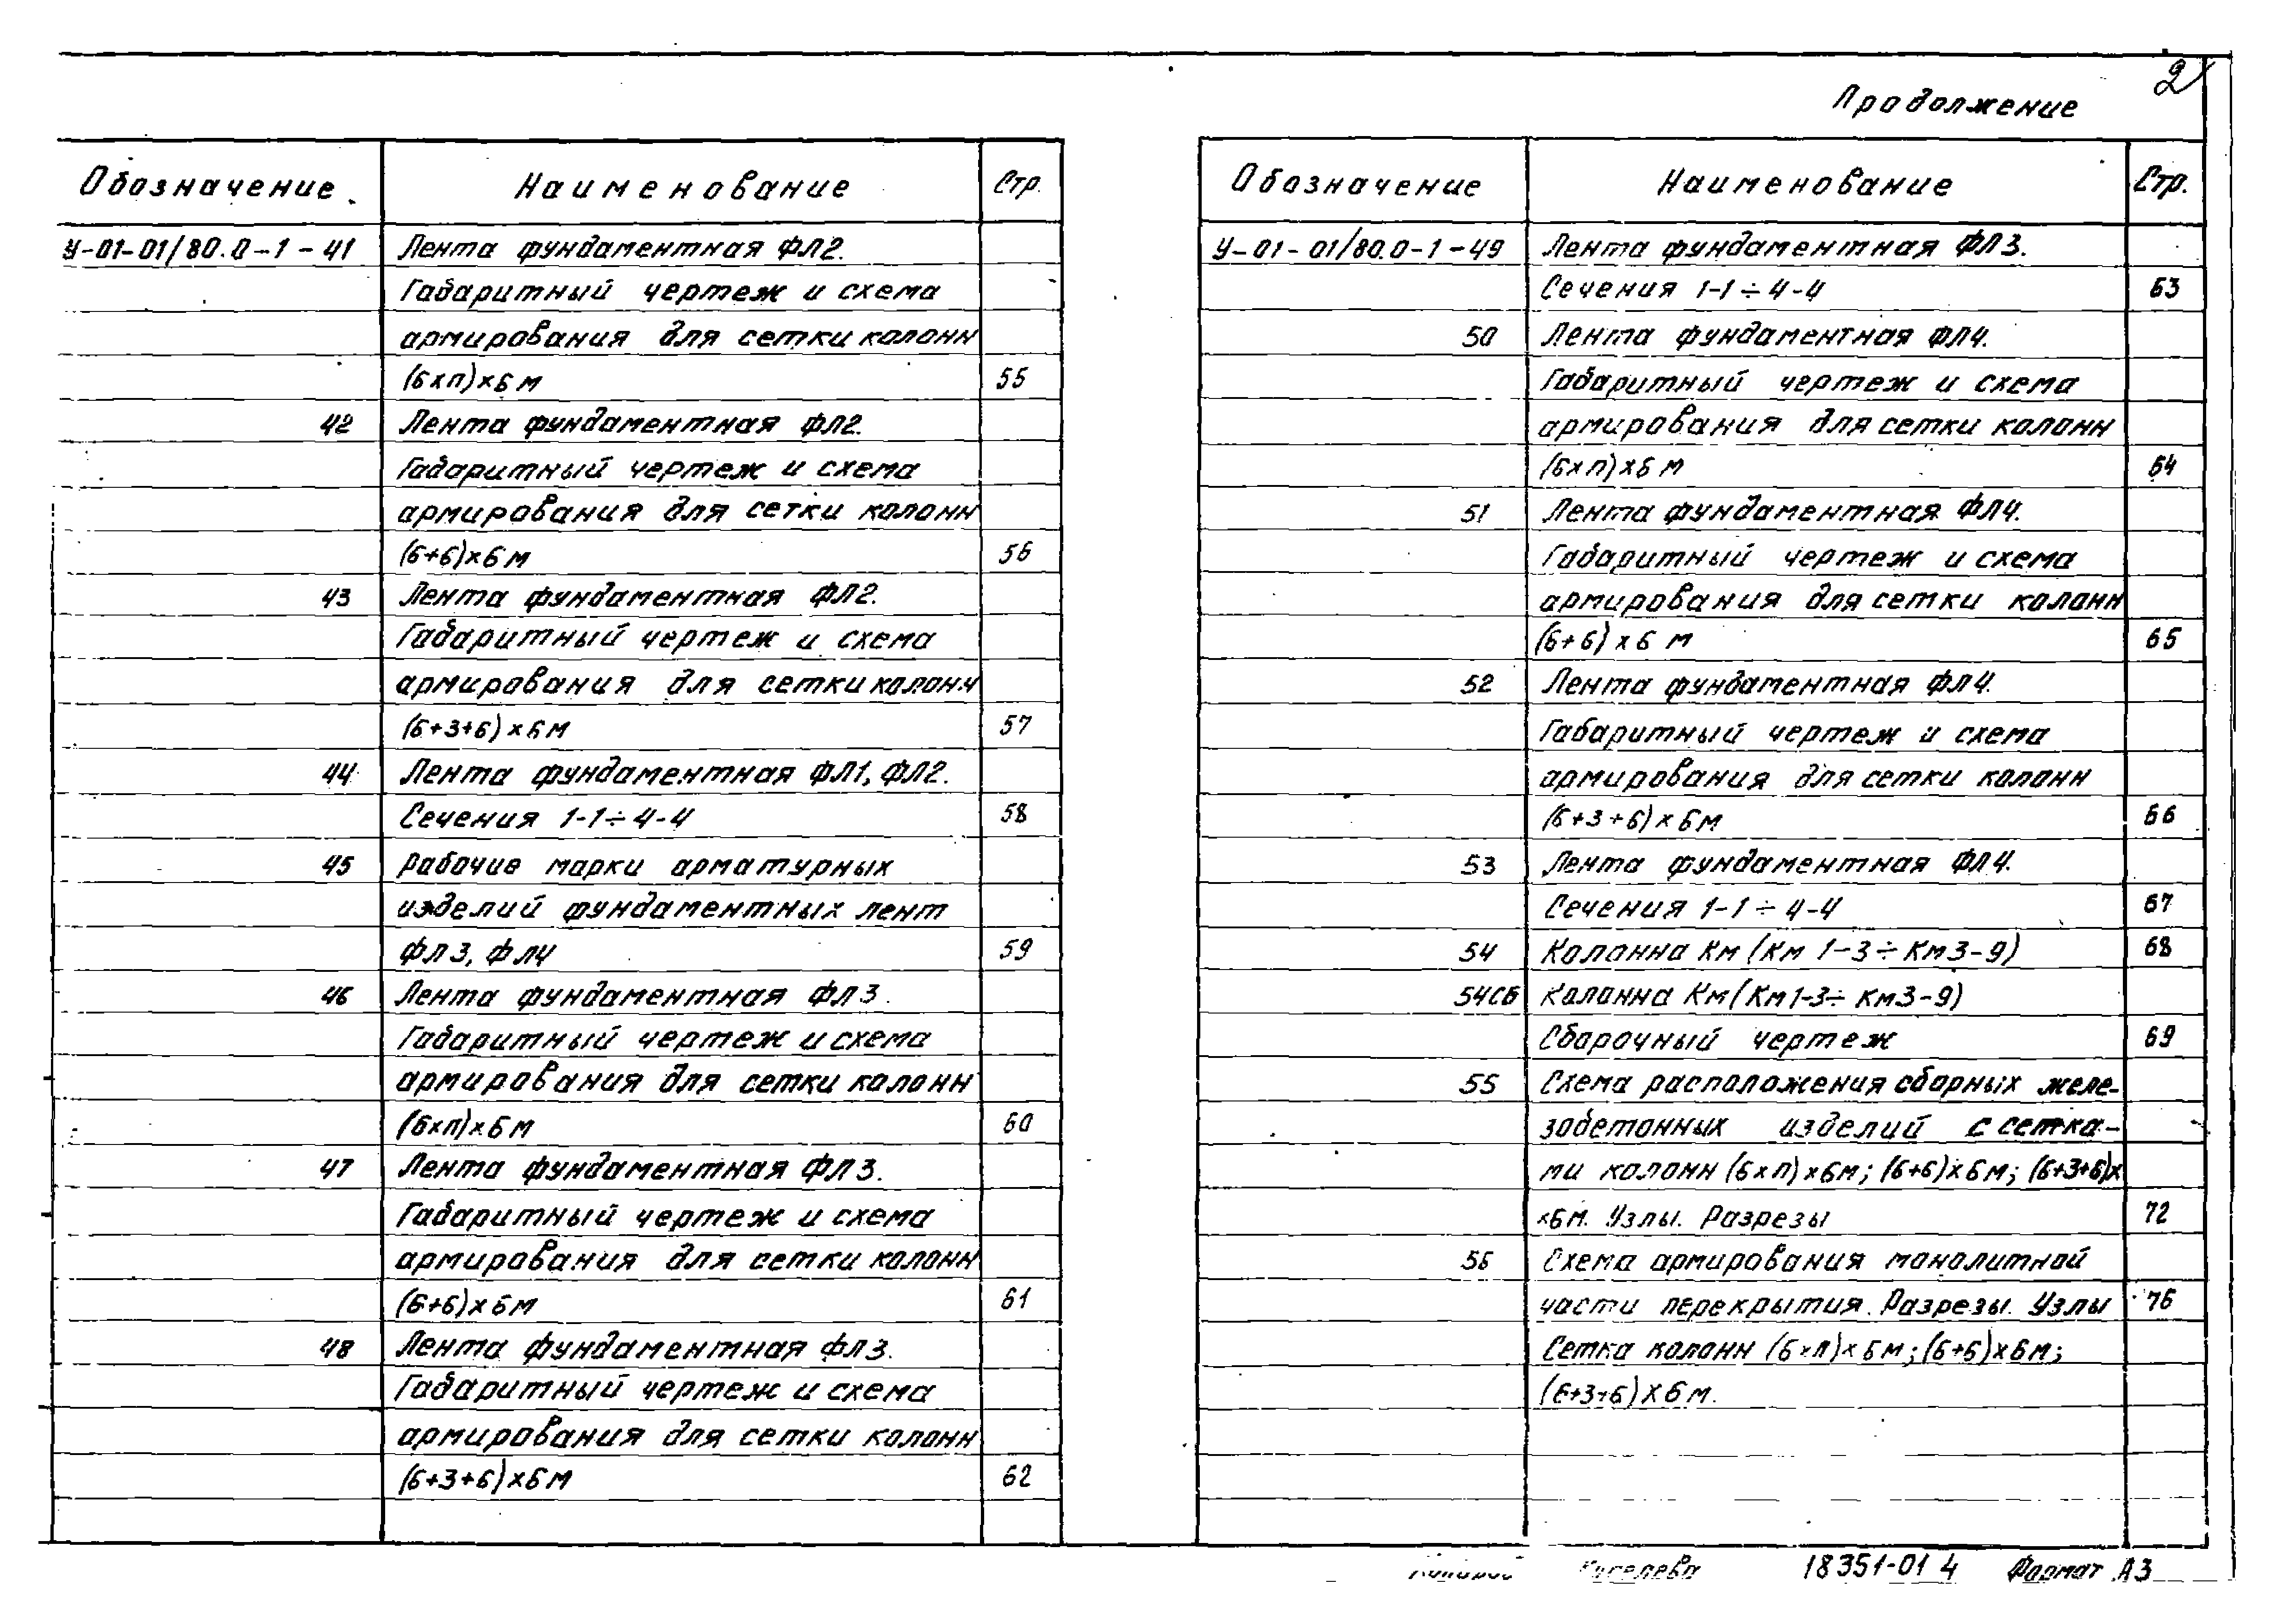 2
Продолжение
Обозначение Наименование Стр.
У-01-01/80.0-1-41 Лента фундаментная ФЛ2.
Габаритный чертеж и схема
армирования для сетки колонн
(6×п)×6м 55
42 Лента фундаментная ФЛ2.
Габаритный чертеж и схема
армирования для сетки колонн
(6+6)×6м 56
43 Лента фундаментная ФЛ2.
Габаритный чертеж и схема
армирования для сетки колонн
(6+3+6)×6м 57
44 Лента фундаментная ФЛ1, ФЛ2.
Сечения 1-1÷4-4 58
45 Рабочие марки арматурных
изделий фундаментных лент
ФЛ3, ФЛ4 59
46 Лента фундаментная ФЛ3.
Габаритный чертеж и схема
армирования для сетки колонн
(6×п)×6м 60
47 Лента фундаментная ФЛ3.
Габаритный чертеж и схема
армирования для сетки колонн
(6+6)×6м 61
48 Лента фундаментная ФЛ3.
Габаритный чертеж и схема
армирования для сетки колонн
(6+3+6)×6м 62
Обозначение Наименование Стр.
У-01-01/80.0-1-49 Лента фундаментная ФЛ3.
Сечения 1-1÷4-4 63
50 Лента фундаментная ФЛ4.
Габаритный чертеж и схема
армирования для сетки колонн
(6×п)×6м 64
51 Лента фундаментная ФЛ4.
Габаритный чертеж и схема
армирования для сетки колонн
(6+6)×6м 65
52 Лента фундаментная ФЛ4.
Габаритный чертеж и схема
армирования для сетки колонн
(6+3+6)×6м 66
53 Лента фундаментная ФЛ4.
Сечения 1-1÷4-4 67
54 Колонна Км (Км 1-3÷Км3-9) 68
54СБ Колонна Км (Км1-3÷Км3-9)
Сборочный чертеж 69
55 Схема расположения сборных желе-
зобетонных изделий с сетка-
ми колонн (6×п)×6м; (6+6)×6м; (6+3+6)×
×6м. Узлы. Разрезы 72
56 Схема армирования монолитной
части перекрытия. Разрезы. Узлы 76
Сетка колонн (6×п)×6м; (6+6)×6м;
(6+3+6)×6м.
18351-01 4 Формат А3